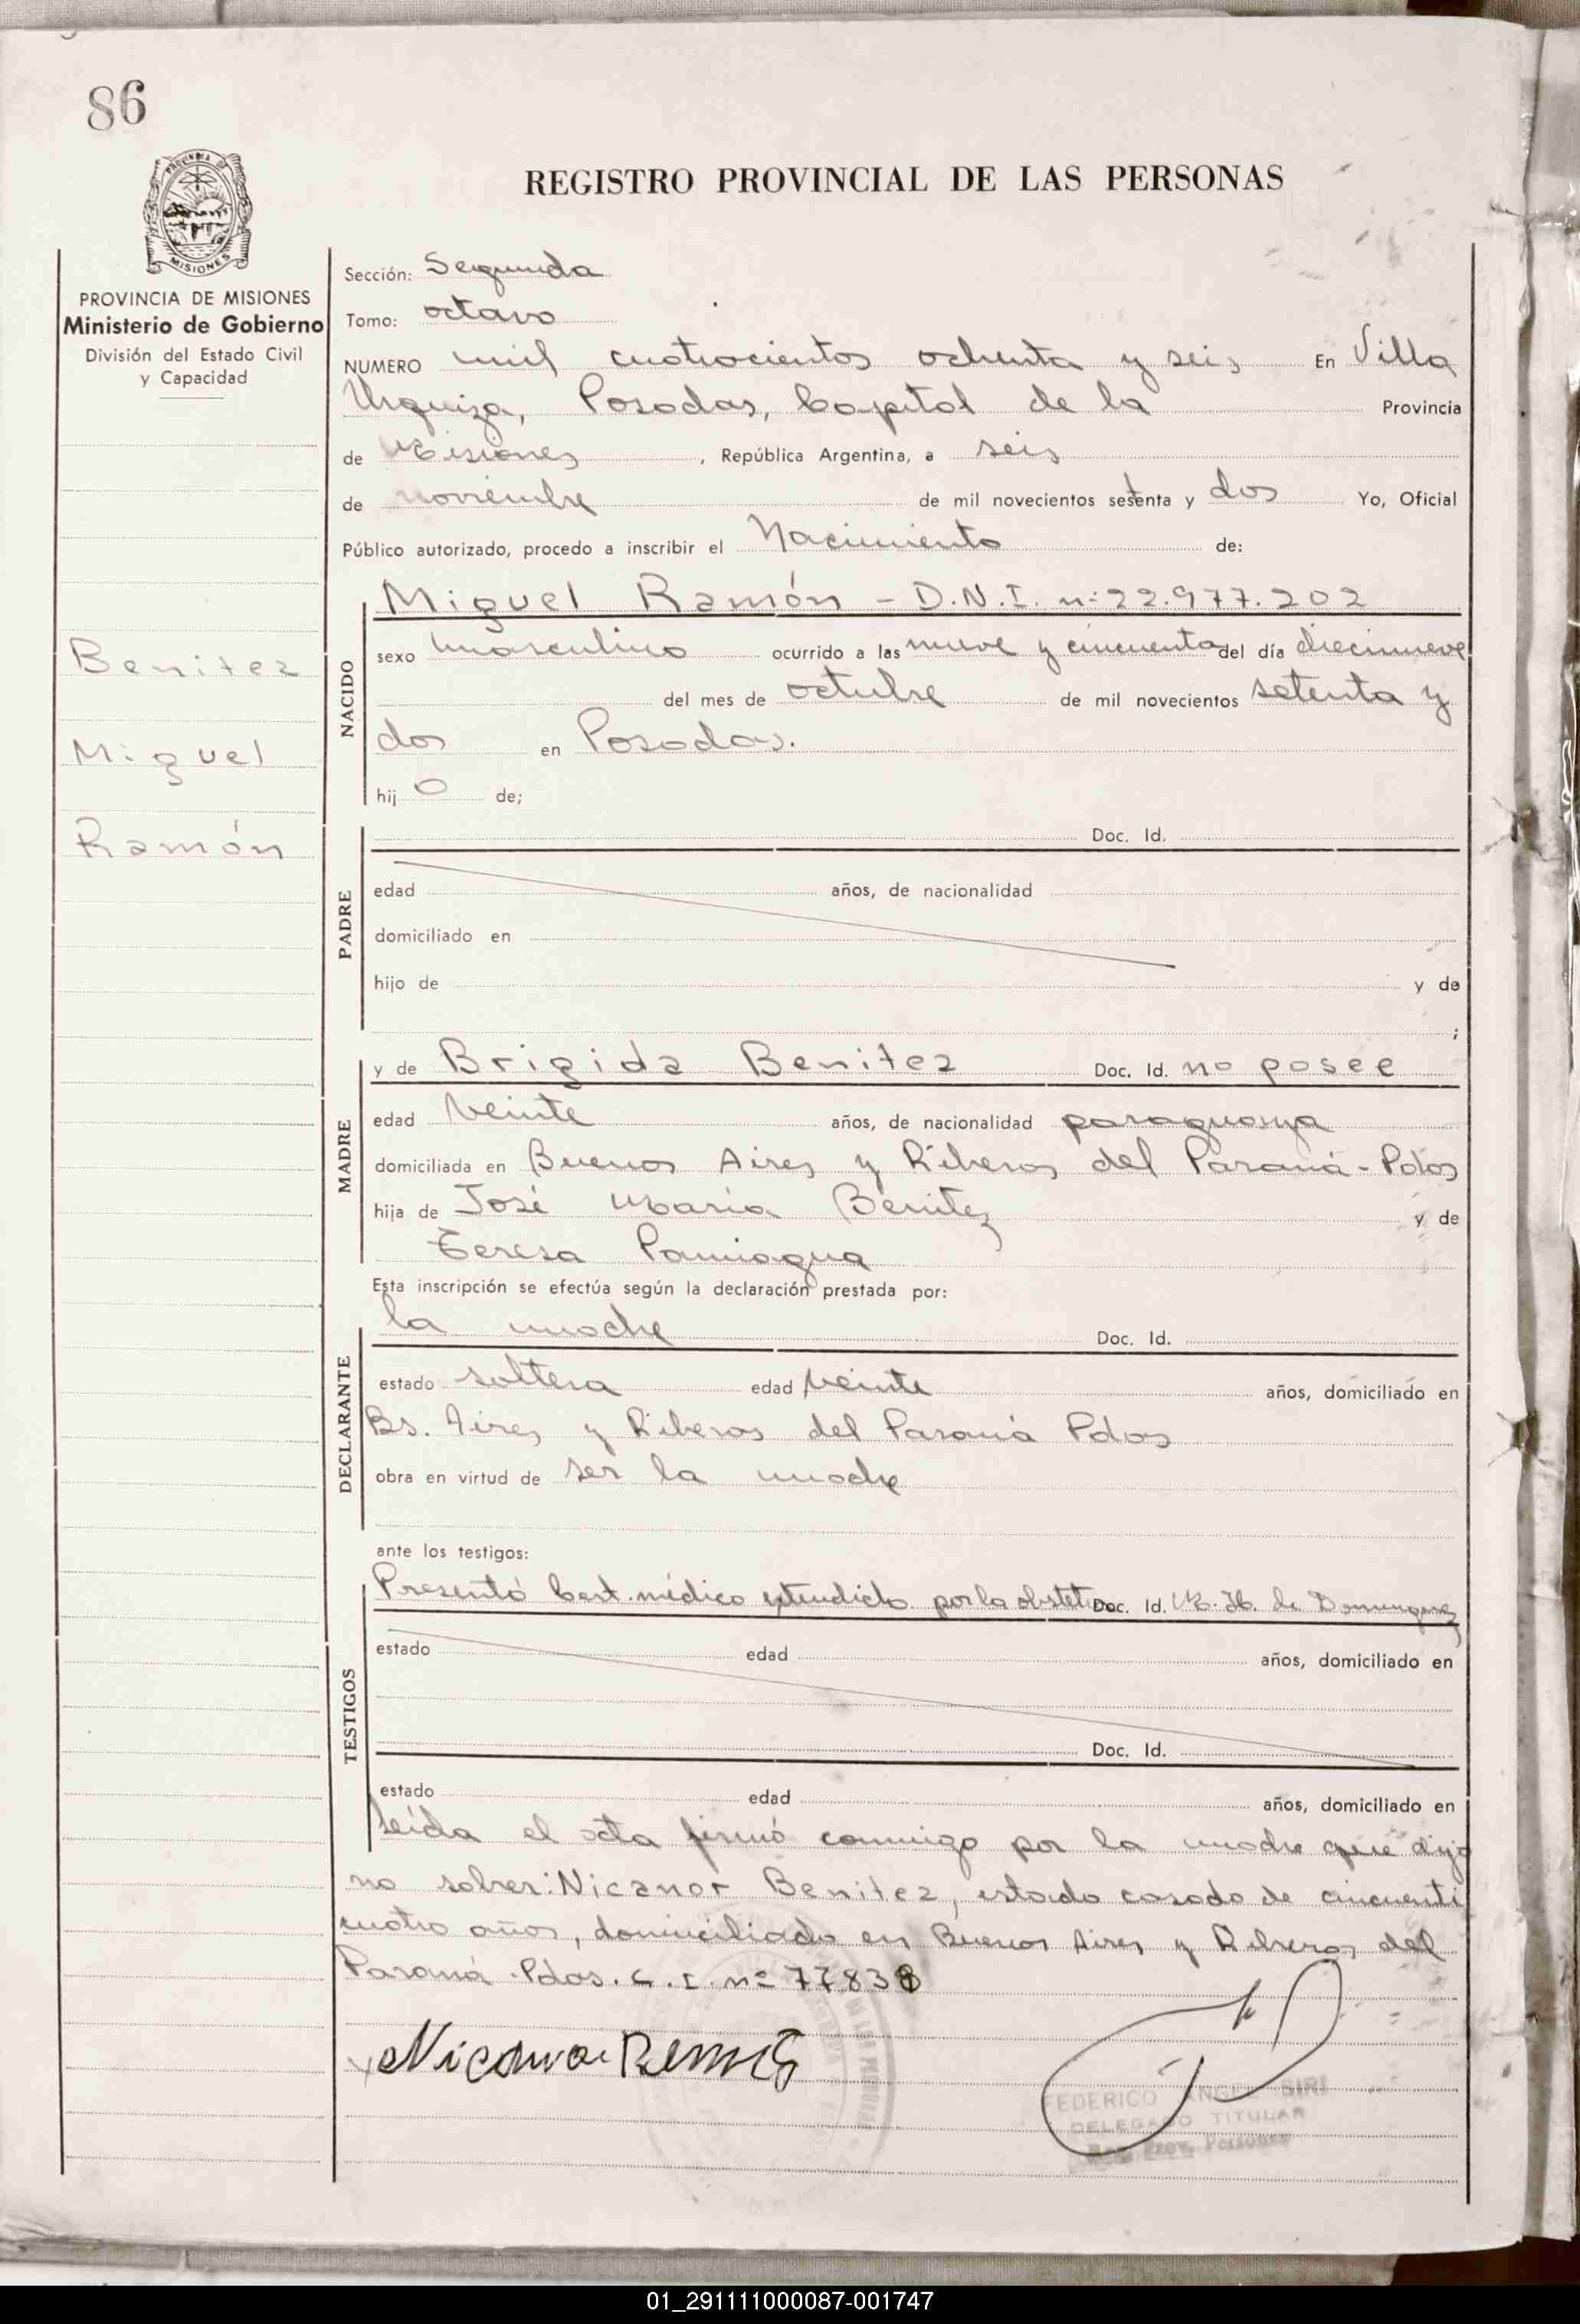 86
REGISTRO PROVINCIAL DE LAS PERSONAS
PROVINCIA DE MISIONES
MISIONES
PROVINCIA DE MISIONES
Ministerio de Gobierno
División del Estado Civil
y Capacidad
Benitez
Miguel
Ramón
Sección: Segunda
Tomo: octavo
NUMERO mil cuatrocientos ochenta y seis En Villa
Urquiza, Posadas, Capital de la Provincia
de Misiones, República Argentina, a seis
de noviembre de mil novecientos setenta y dos Yo, Oficial
Público autorizado, procedo a inscribir el Nacimiento de:
NACIDO
Miguel Ramón - D.N.I. nº 22.977.202
sexo masculino ocurrido a las nueve y cincuenta del día diecinueve
del mes de octubre de mil novecientos setenta y
dos en Posadas.
hij o de;
PADRE
Doc. Id.
edad años, de nacionalidad
domiciliado en
hijo de y de
;
MADRE
y de Brigida Benitez Doc. Id. no posee
edad veinte años, de nacionalidad paraguaya
domiciliada en Buenos Aires y Riberas del Paraná - Pdas
hija de José María Benitez y de
Teresa Paniagua
Esta inscripción se efectúa según la declaración prestada por:
DECLARANTE
la madre Doc. Id.
estado soltera edad veinte años, domiciliado en
Bs. Aires y Riberas del Paraná Pdas
obra en virtud de ser la madre
ante los testigos:
TESTIGOS
Presentó Cert. médico extendido por la obstetra Doc. Id. M. H. de Dominguez
estado edad años, domiciliado en
Doc. Id.
estado edad años, domiciliado en
leída el acta firmó conmigo por la madre que dijo
no saber: Nicanor Benitez, estado casado de cincuenti
cuatro años, domiciliado en Buenos Aires y Riberas del
Paraná - Pdas. C. I. nº 77838
Nicanor Benitez
FEDERICO ANGEL SIRI
DELEGADO TITULAR
Reg. Prov. Personas
01_291111000087-001747